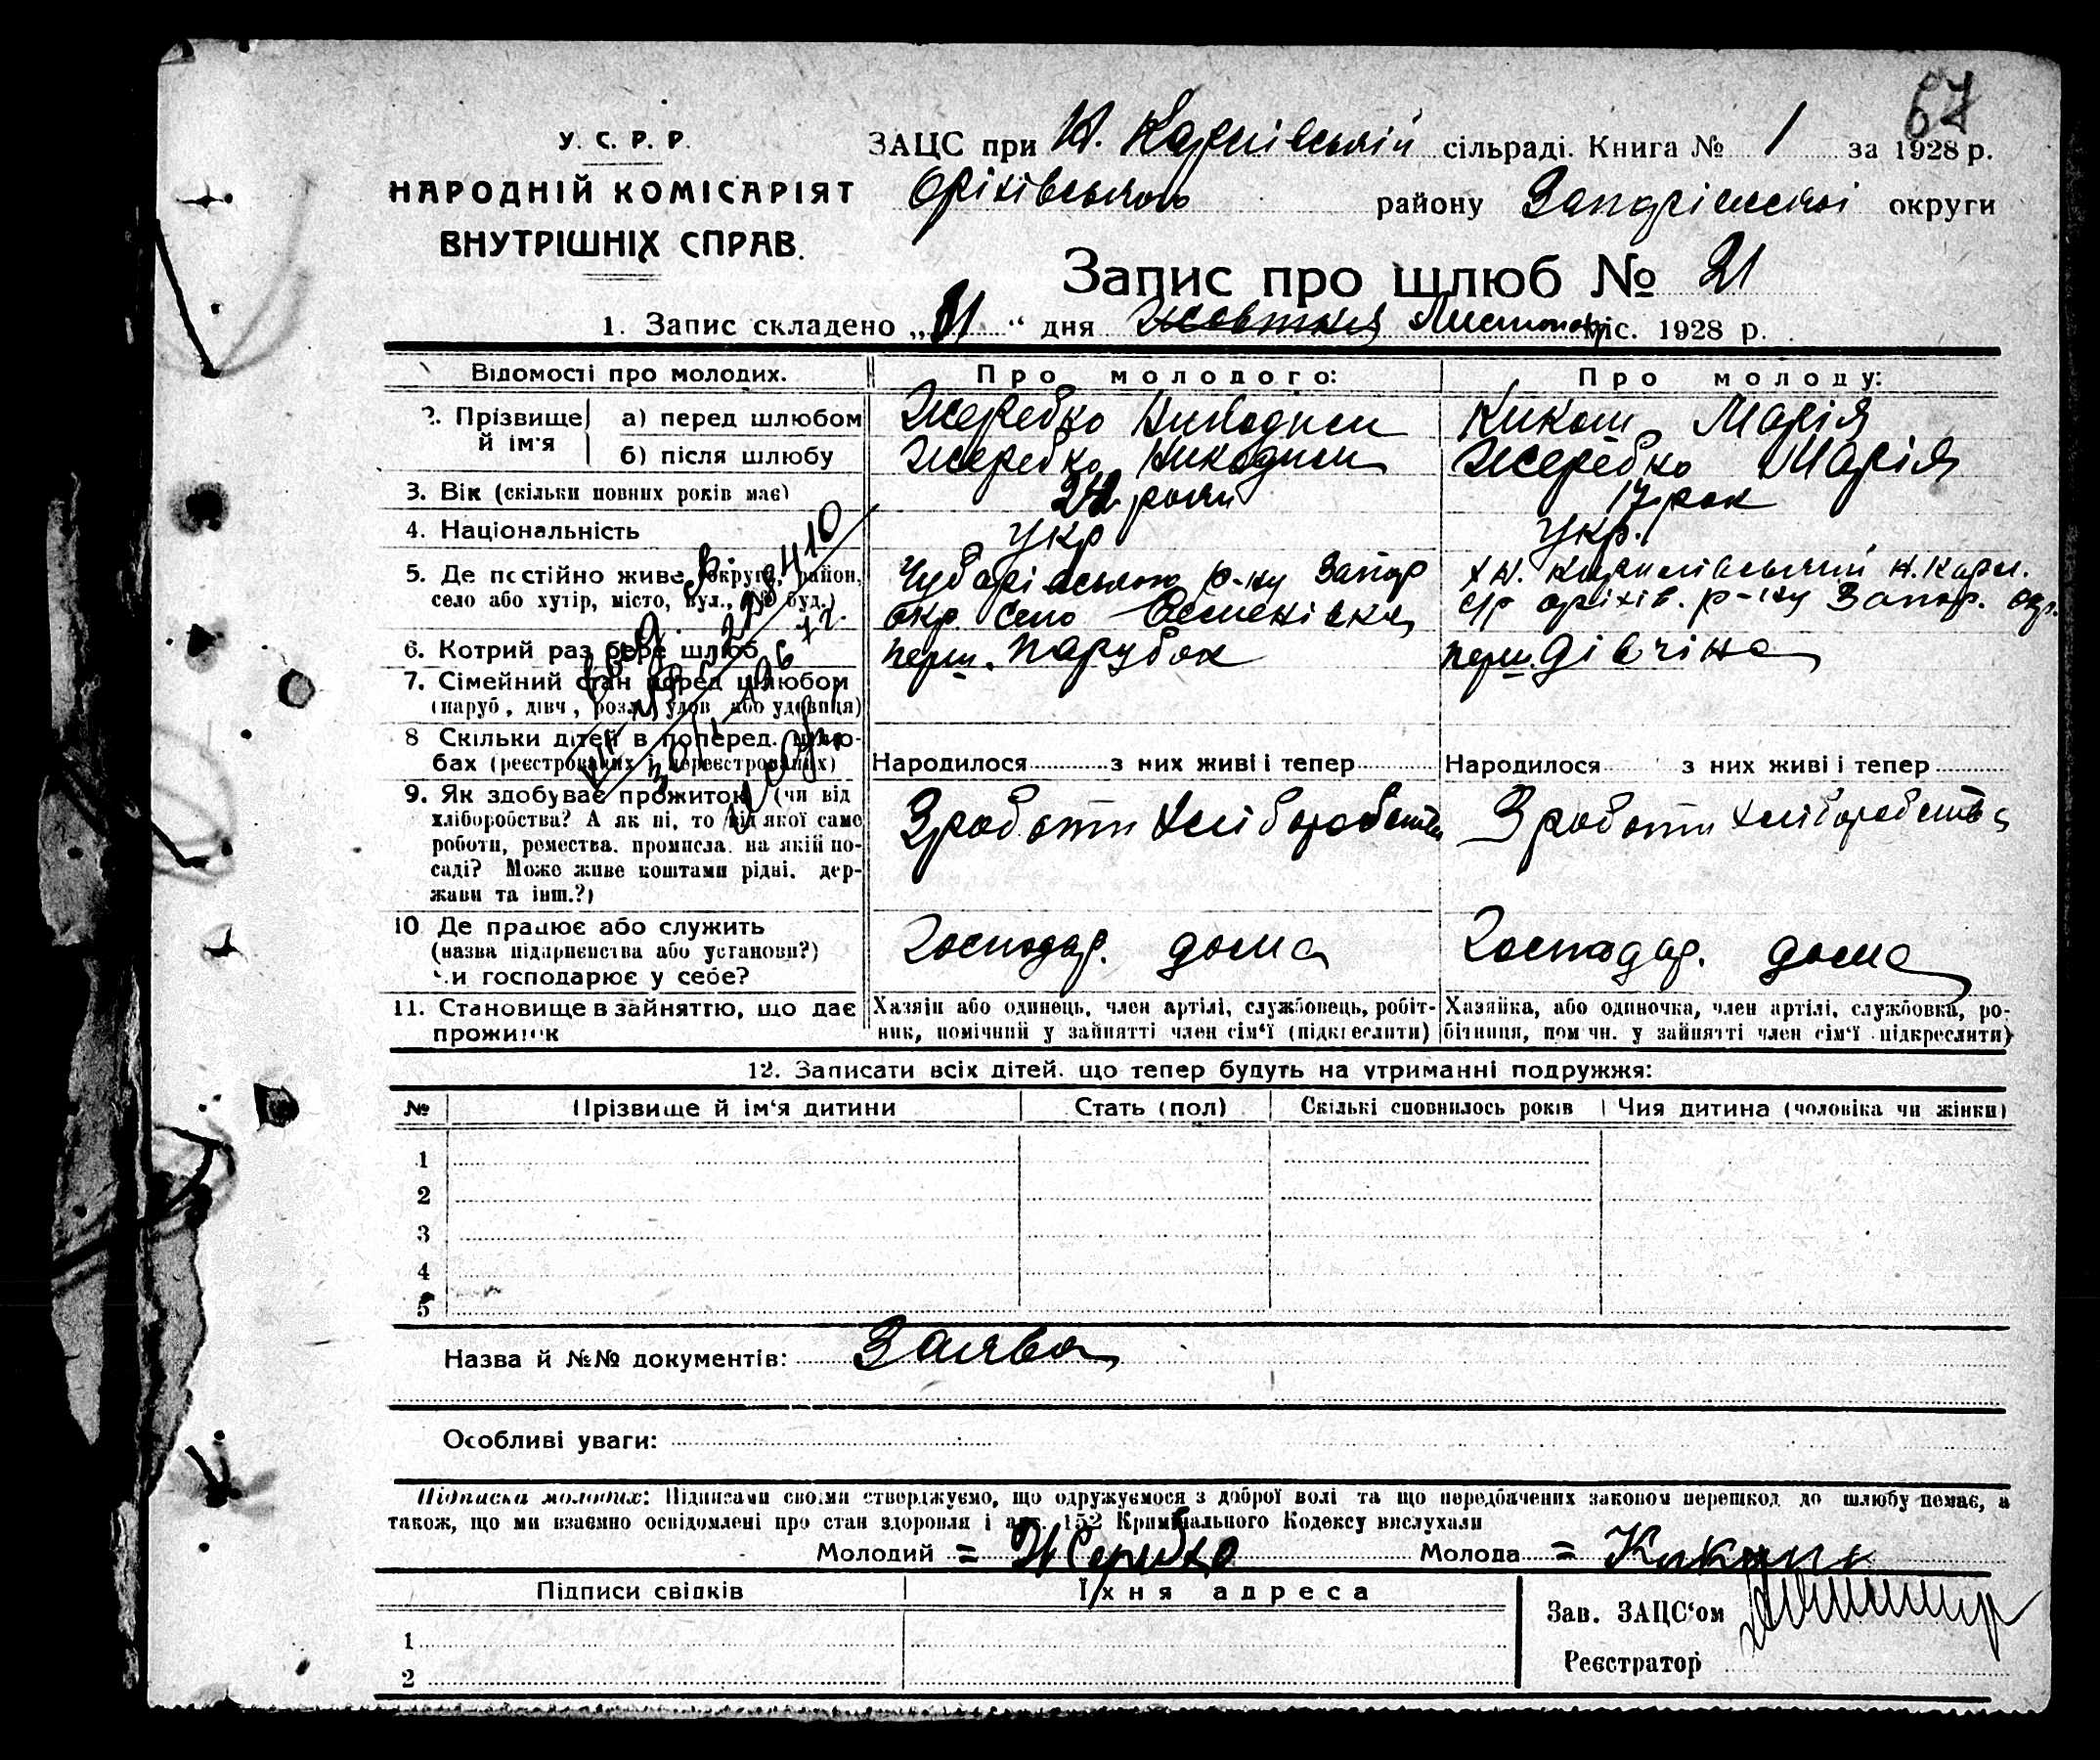 67
У. С. Р. Р.
НАРОДНІЙ КОМІСАРІЯТ
ВНУТРІШНІХ СПРАВ.
ЗАЦС при Н. Карлівській сільраді. Книга № 1 за 1928 р.
Оріхівського району Запоріжської округи
Запис про шлюб № 21
1. Запис складено „ “ дня Жовтня Листопад міс. 1928 р.
Відомості про молодих. Про молодого: Про молоду:
2. Прізвище й ім'я а) перед шлюбом Жеребко Никодим Кикот Марія
б) після шлюбу Жеребко Никодим Жеребко Марія
3. Вік (скільки повних років має) роки 17 рок
4. Національність Укр Укр.
5. Де постійно живе (округа, район, Чубарівського р-ну Запор х Н. Карлівський Н. Карл.
село або хутір, місто, вул., буд.) окр. село Семенівка с/р оріхів. р-ну Запор. окр.
6. Котрий раз бере шлюб перш. парубок перш. дівчіна
7. Сімейний стан перед шлюбом
(паруб, дівч, розл, удов або удовиця)
8 Скільки дітей в поперед. шлю-
бах (реєстрованих і нереєстрованих) Народилося з них живі і тепер Народилося з них живі і тепер
9. Як здобуває прожиток (чи від
хліборобства? А як ні, то від якої само З работи хліборобства З работи хліборобства
роботи, ремества. промисла. на якій по-
саді? Може живе коштами рідні. дер-
жави та інш.?)
10 Де працює або служить Господар. дома Господар. дома
(назва підприємства або установи?)
чи господарює у себе?
11. Становище в зайняттю, що дає Хазяїн або одинець, член артілі, службовець, робіт- Хазяйка, або одиночка, член артілі, службовка, ро-
прожиток ник, помічний у зайнятті член сім'ї (підкреслити) бітниця, пом чн. у зайнятті член сім'ї підкреслити)
12. Записати всіх дітей. що тепер будуть на утриманні подружжя:
№ Прізвище й ім'я дитини Стать (пол) Скількі сповнилось років Чия дитина (чоловіка чи жінки)
1
2
3
4
5
Назва й №№ документів: Заява
Особливі уваги:
Підписка молодих: Підписами своїми стверджуємо, що одружуємося з доброї волі та що передбачених законом перешкод до шлюбу немає, а
також, що ми взаємно освідомлені про стан здоровля і арт. 152 Кримінального Кодексу вислухали
Молодий = Жеребко Молода =
Підписи свідків Їхня адреса
Зав. ЗАЦС'ом
1
Реєстратор
2